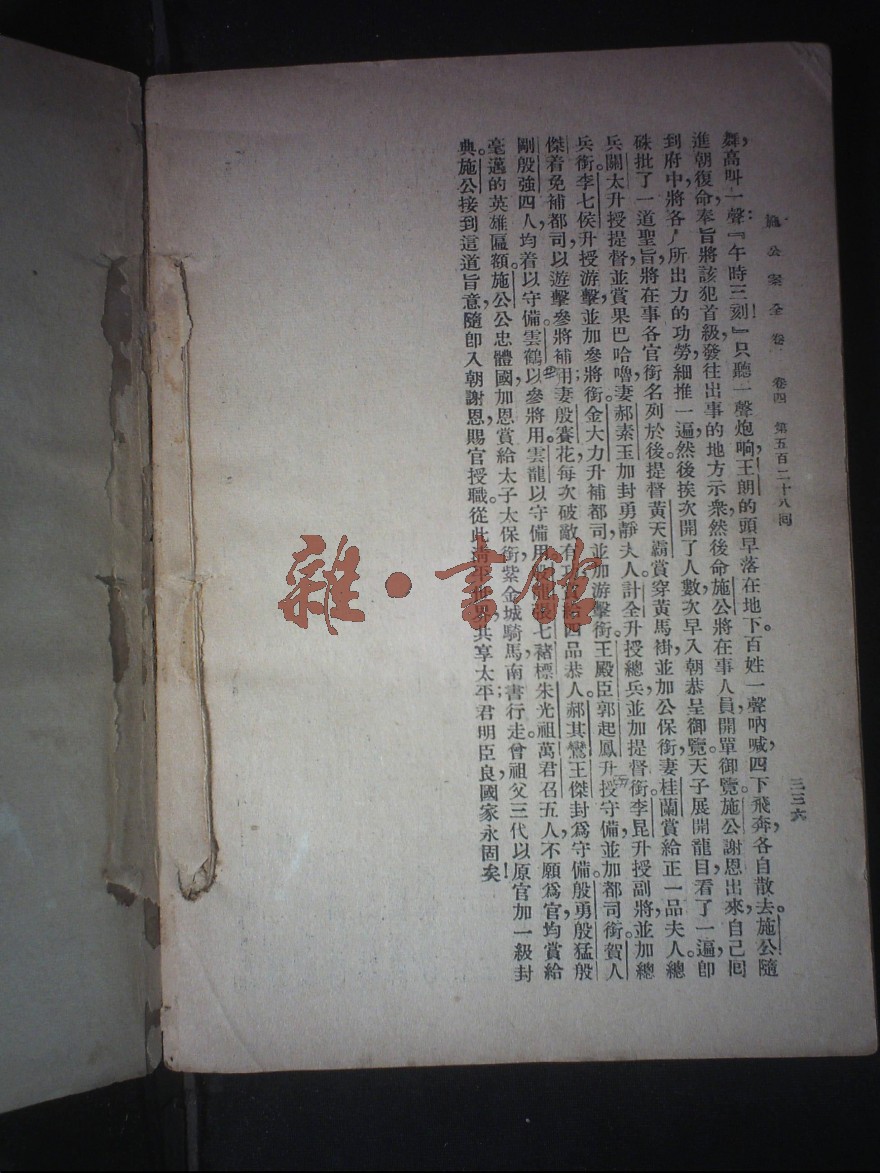 施公案全卷 卷四 第五百二十八回 三三六
舞,高叫一聲:『午時三刻!』只聽一聲炮响,王朗的頭早落在地下。百姓一聲吶喊,四下飛奔,各自散去。施公隨
進朝復命,奉旨將該犯首級,發往出事的地方示衆,然後命施公將在事人員開單御覽。施公謝恩出來,自己回
到府中,將各人所出力的功勞,細推一遍,然後挨次開了人數,次早入朝恭呈御覽。天子展開龍目看了一遍,卽
硃批了一道聖旨,將在事各官銜名列於後:提督黃天霸賞穿黃馬褂,並加公保銜,妻桂蘭賞給正一品夫人。總
兵關太升授提督,並賞果巴哈嚕,妻郝素玉加封勇靜夫人。計全升授總兵,並加提督銜。李昆升授副將,並加總
兵銜。李七侯升授游擊,並加參將銜。金大力升補都司,並加游擊銜。王殿臣郭起鳳升授守備,並加都司銜。賀人
傑着免補都司,以游擊參將補用;妻殷賽花每次破敵有功,賞給四品恭人。郝其鸞王傑封爲守備。殷勇殷猛殷
剛殷強四人,均着以守備。雲鶴以參將用。雲龍以守備用。七豬標朱光祖萬君召五人,不願爲官,均賞給
毫邁的英雄匾額。施公公忠體國,加恩賞給太子太保銜,紫金城騎馬,南書行走。曾祖父三代以原官加一級封
典。施公接到這道旨意,隨卽入朝謝恩,賜官授職。從此清平世界,共享太平;君明臣良,國家永固矣!
雜·書館